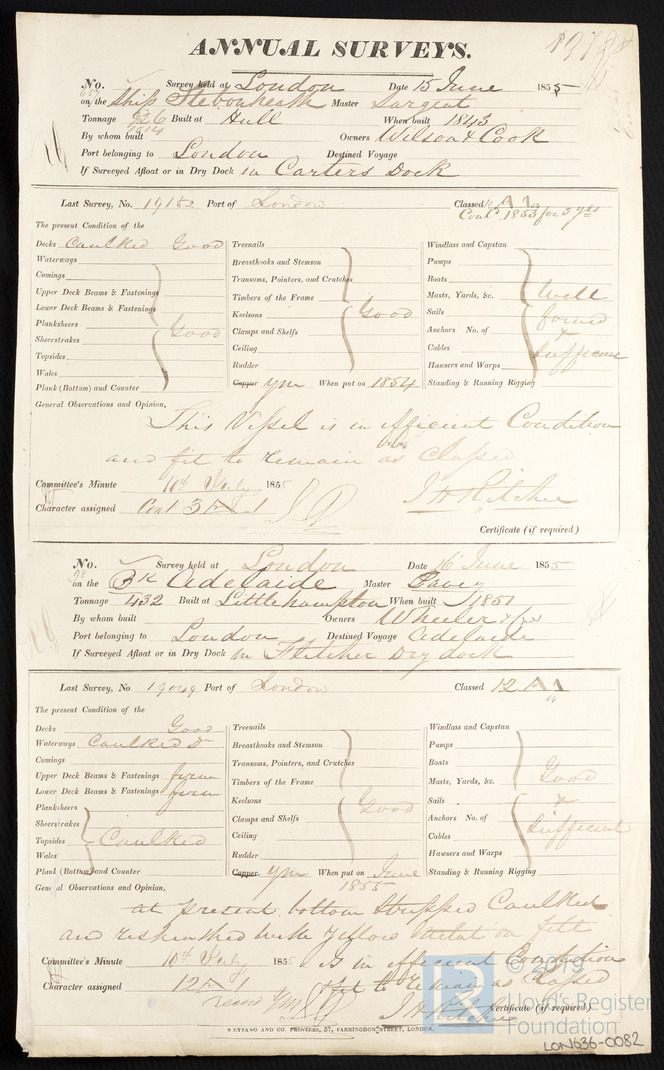 ANNUAL SURVEYS.
No. Survey held at London Date 15 June 1855
on the Ship Stebonheath Master Sargent
Tonnage Built at Hull When built 1843
1014
By whom built Owners Wilson & Cook
Port belonging to London Destined Voyage
If Surveyed Afloat or in Dry Dock in Carters Dock
Last Survey, No. 19152 Port of London Classed A1
Cont. 1853 for 3 yrs
The present Condition of the
Decks Caulked Good
Waterways
Comings
Upper Deck Beams & Fastenings
Lower Deck Beams & Fastenings
Planksheers Good
Sheerstrakes
Topsides
Wales
Plank (Bottom) and Counter
Treenails
Breasthooks and Stemson
Transoms, Pointers, and Crutches
Timbers of the Frame
Keelsons Good
Clamps and Shelfs
Ceiling
Rudder
Copper ym When put on 1854
Windlass and Capstan
Pumps
Boats
Masts, Yards, &c. Well
Sails found
Anchors No. of &
Cables Sufficient
Hawsers and Warps
Standing & Running Rigging
General Observations and Opinion,
This Vessel is in efficient Condition
and fit to remain as Classed
Committee's Minute 10th July 1855
Character assigned Cont 3 A 1
J H Ritchie
Certificate (if required)
No. Survey held at London Date 16 June 1855
on the Bk Adelaide Master Davey
Tonnage 432 Built at Littlehampton When built 1851
By whom built Owners Wheeler & Co
Port belonging to London Destined Voyage Adelaide
If Surveyed Afloat or in Dry Dock in Fletcher Dry dock
Last Survey, No 19049 Port of London Classed 12 A1
The present Condition of the
Decks Good
Waterways Caulked
Comings
Upper Deck Beams & Fastenings firm
Lower Deck Beams & Fastenings firm
Planksheers
Sheerstrakes
Topsides Caulked
Wales
Plank (Bottom) and Counter
Treenails
Breasthooks and Stemson
Transoms, Pointers, and Crutches
Timbers of the Frame
Keelsons Good
Clamps and Shelfs
Ceiling
Rudder
Copper ym When put on June
1855
Windlass and Capstan
Pumps
Boats
Masts, Yards, &c. Good
Sails &
Anchors No. of Sufficient
Cables
Hawsers and Warps
Standing & Running Rigging
General Observations and Opinion,
at present bottom Stripped Caulked
and resheathed with Yellow Metal on felt
Committee's Minute 10th July 1855 is in efficient Condition
Character assigned 12 A 1 fit to remain as Classed
J H Ritchie Certificate (if required)
REYFANG AND CO. PRINTERS, 57, FARRINGDON STREET, LONDON.
© 2019
Lloyd's Register
Foundation
LON636-0082